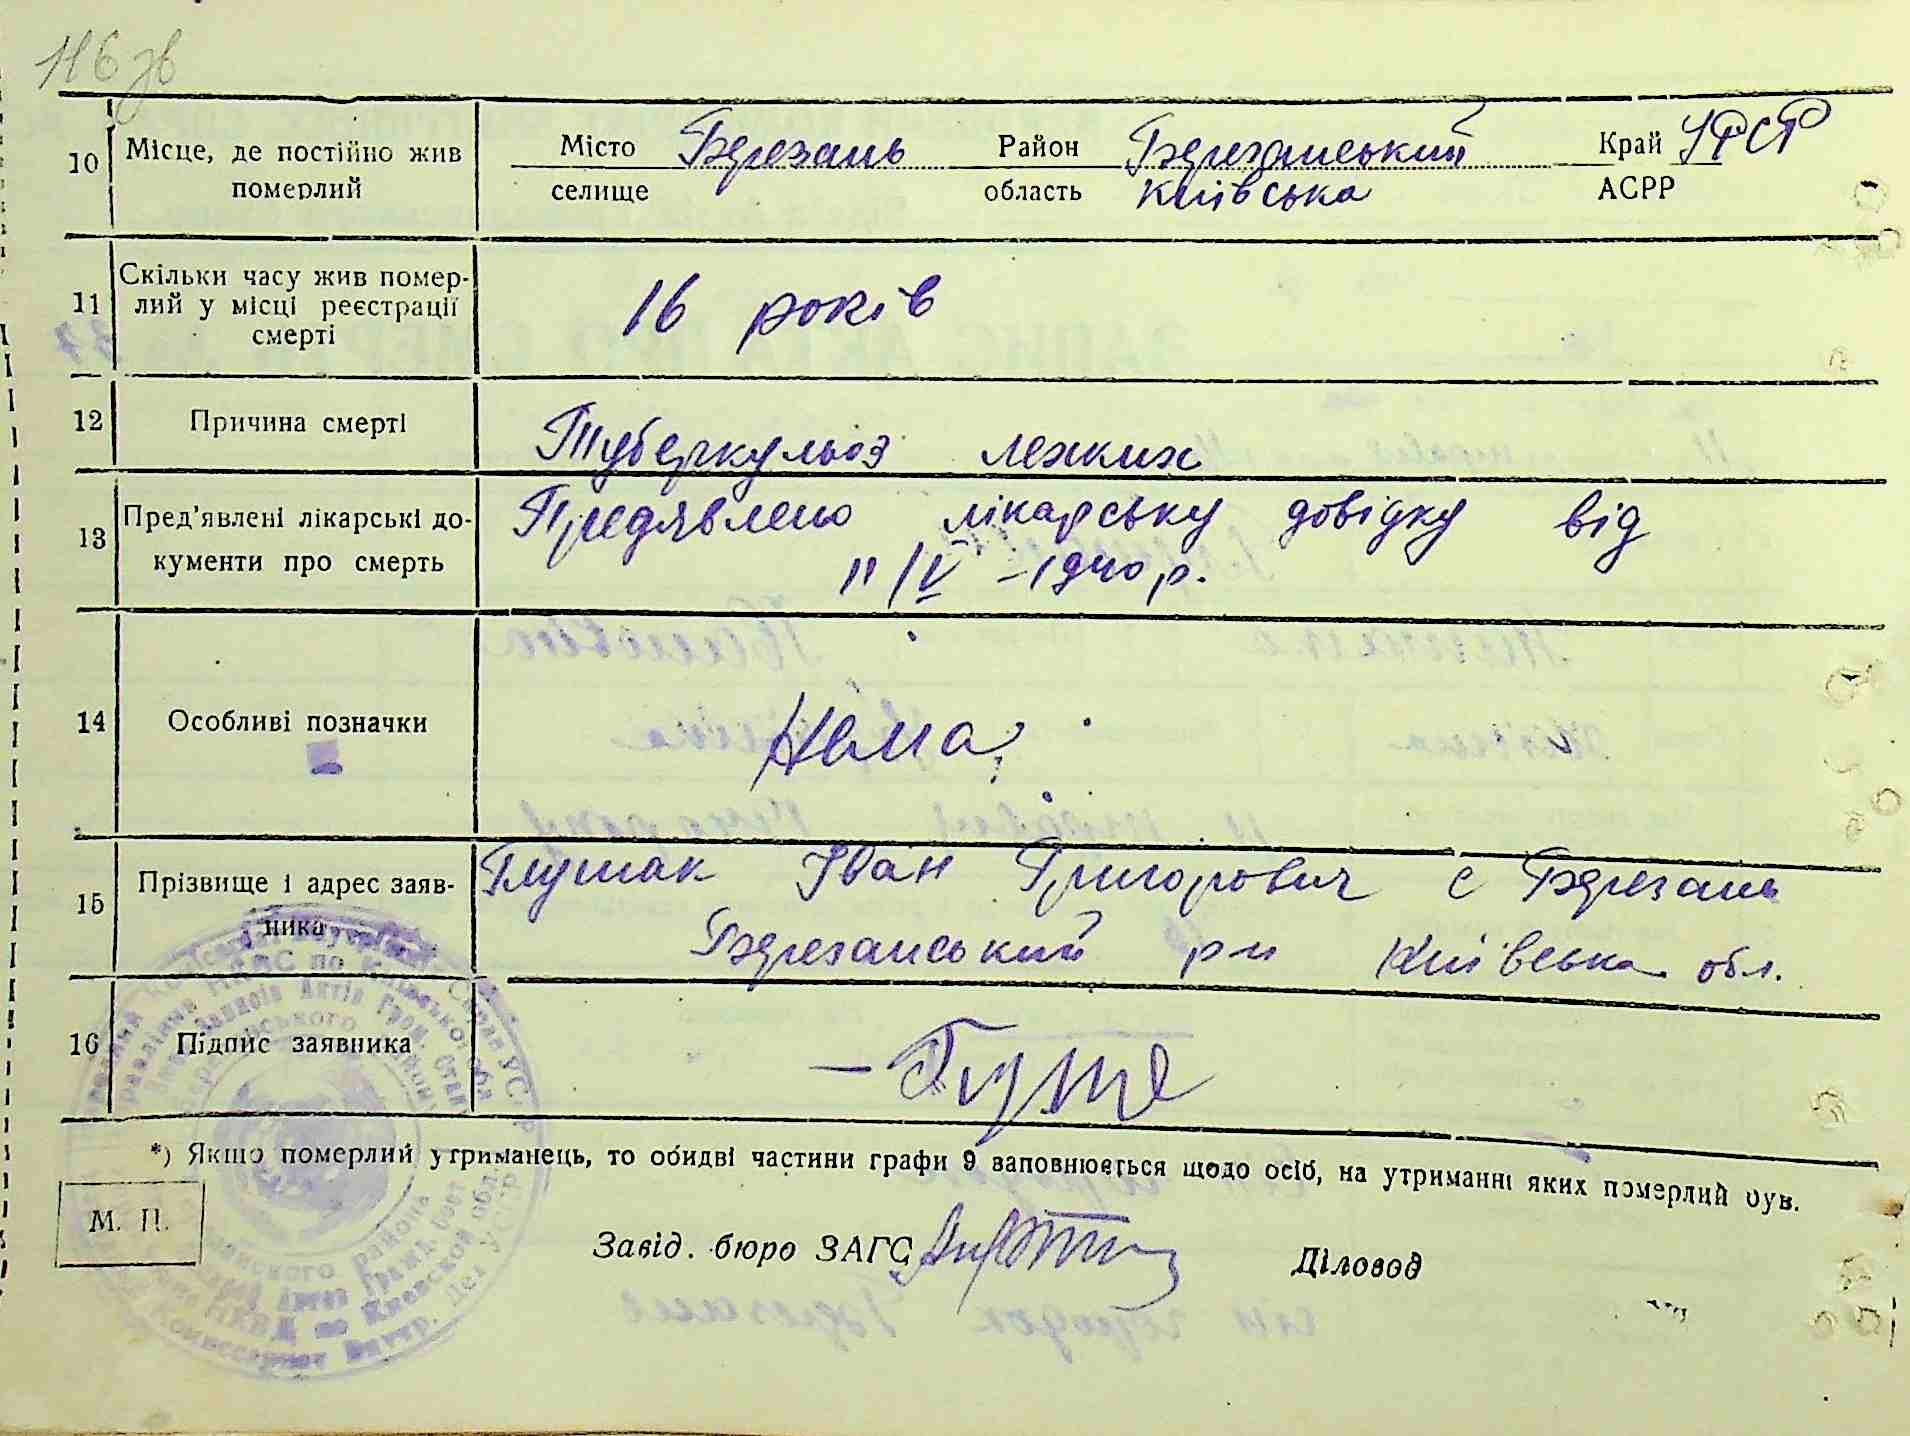 116 зв
10 Місце, де постійно жив померлий
Місто Березань Район Березанський Край УРСР
селище область Київська АСРР
11 Скільки часу жив помер-
лий у місці реєстрації
смерті
16 років
12 Причина смерті Туберкульоз лехких
13 Пред'явлені лікарські до-
кументи про смерть
Предявлено лікарську довідку від
11/V – 1940 р.
14 Особливі позначки Нема
15 Прізвище і адрес заяв-
ника
Глушак Іван Григорович с Березань
Березанський р-н Київська обл.
16 Підпис заявника
*) Якщо померлий утриманець, то обидві частини графи 9 заповнюється щодо осіб, на утриманні яких померлий був.
М. П.
Завід. бюро ЗАГС Діловод